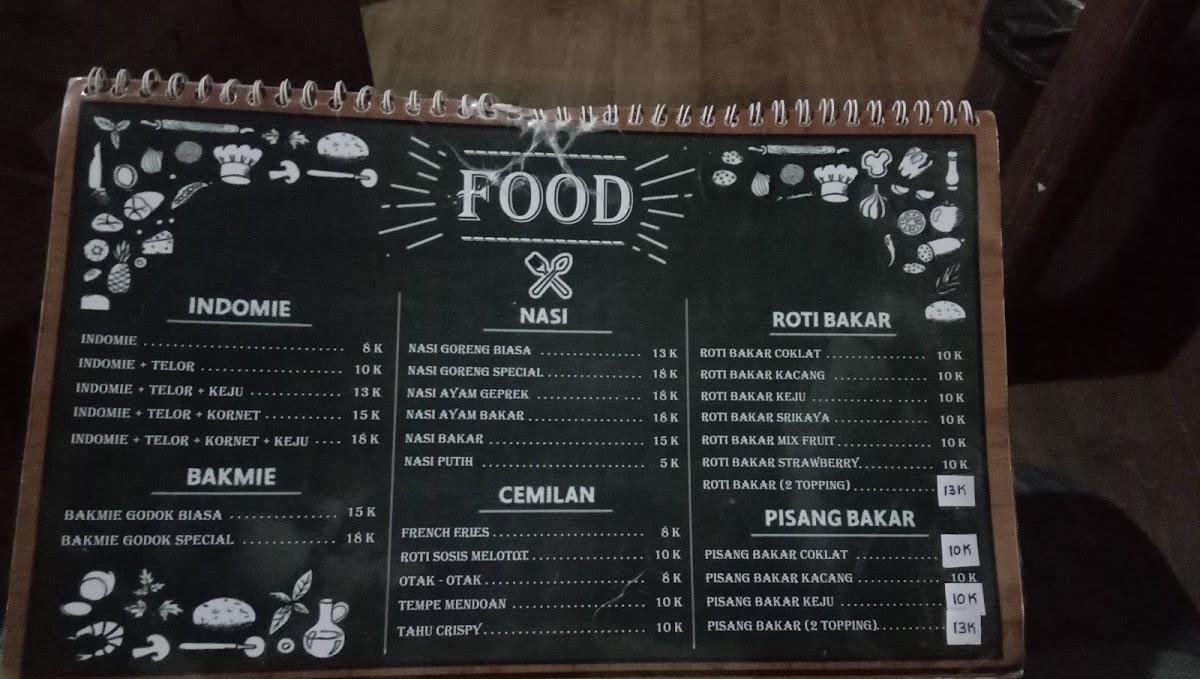 FOOD
INDOMIE
INDOMIE ........ 8 K
INDOMIE + TELOR ........ 10 K
INDOMIE + TELOR + KEJU ........ 13 K
INDOMIE + TELOR + KORNET ........ 15 K
INDOMIE + TELOR + KORNET + KEJU .... 18 K
BAKMIE
BAKMIE GODOK BIASA ........ 15 K
BAKMIE GODOK SPECIAL ........ 18 K
NASI
NASI GORENG BIASA ........ 13 K
NASI GORENG SPECIAL ........ 18 K
NASI AYAM GEPREK ........ 18 K
NASI AYAM BAKAR ........ 18 K
NASI BAKAR ........ 15 K
NASI PUTIH ........ 5 K
CEMILAN
FRENCH FRIES ........ 8 K
ROTI SOSIS MELOTOT ........ 10 K
OTAK - OTAK ........ 8 K
TEMPE MENDOAN ........ 10 K
TAHU CRISPY ........ 10 K
ROTI BAKAR
ROTI BAKAR COKLAT ........ 10 K
ROTI BAKAR KACANG ........ 10 K
ROTI BAKAR KEJU ........ 10 K
ROTI BAKAR SRIKAYA ........ 10 K
ROTI BAKAR MIX FRUIT ........ 10 K
ROTI BAKAR STRAWBERRY ........ 10 K
ROTI BAKAR (2 TOPPING) ........ 13K
PISANG BAKAR
PISANG BAKAR COKLAT ........ 10K
PISANG BAKAR KACANG ........ 10 K
PISANG BAKAR KEJU ........ 10K
PISANG BAKAR (2 TOPPING) ........ 13K